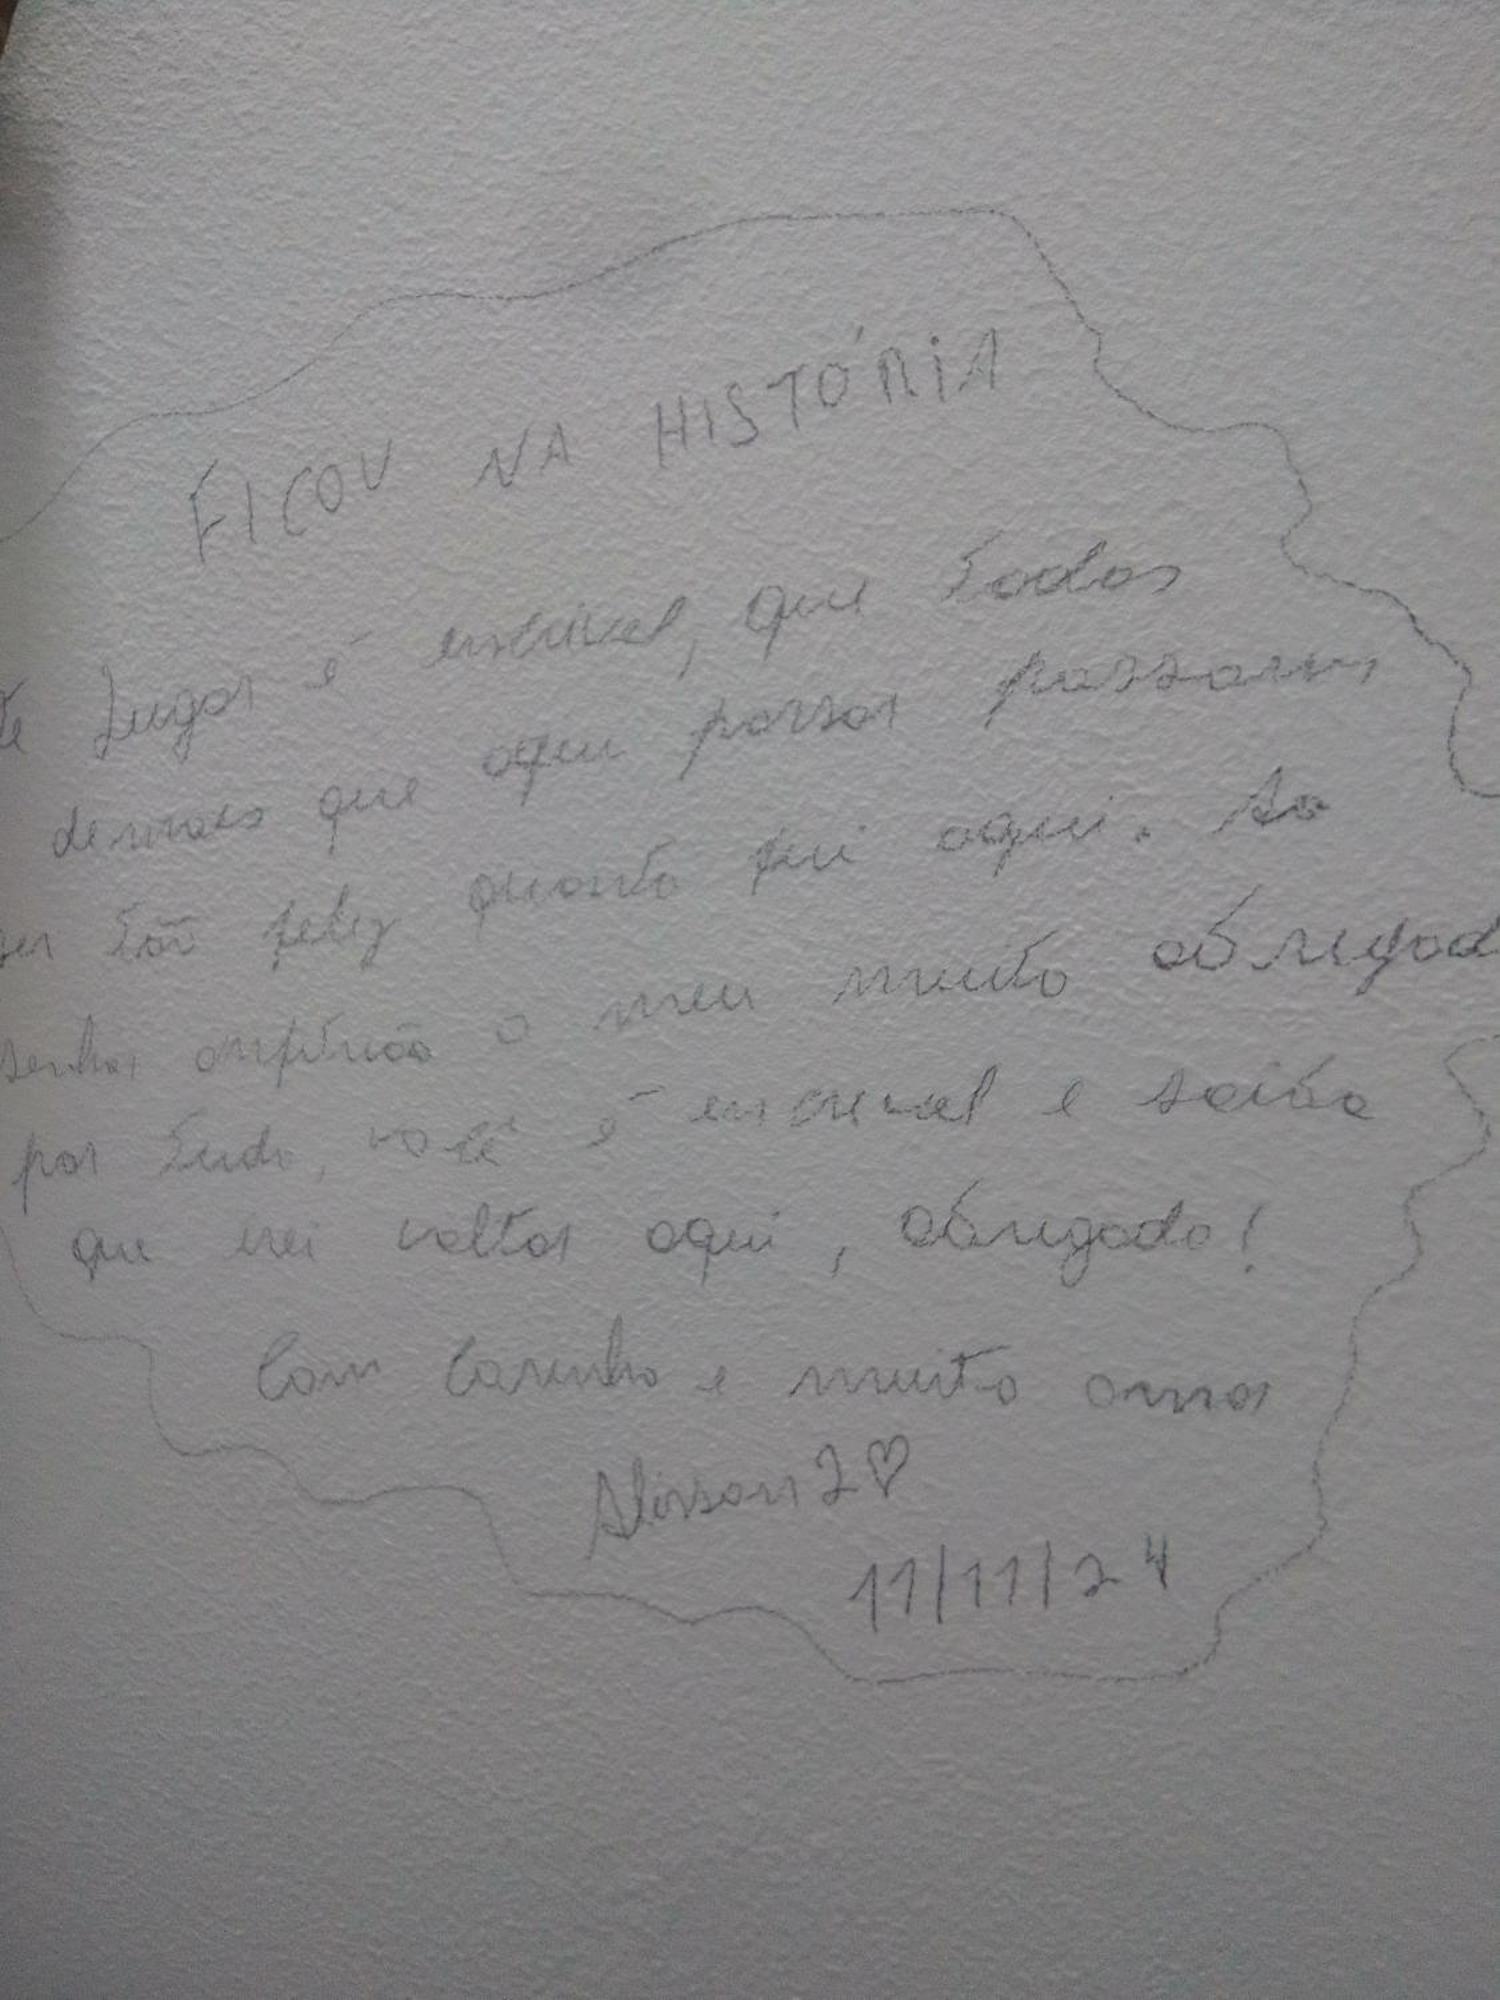 FICOU NA HISTÓRIA
te Lugar é incrivel, que todos
demais que aqui passar possam,
ser tão feliz quanto fui aqui. Ao
senhor anfitrião o meu muito obrigad
por tudo, você é incrivel e saiba
que irei voltar aqui, obrigado!
Com carinho e muito amor
Alisson 2♡
11/11/24